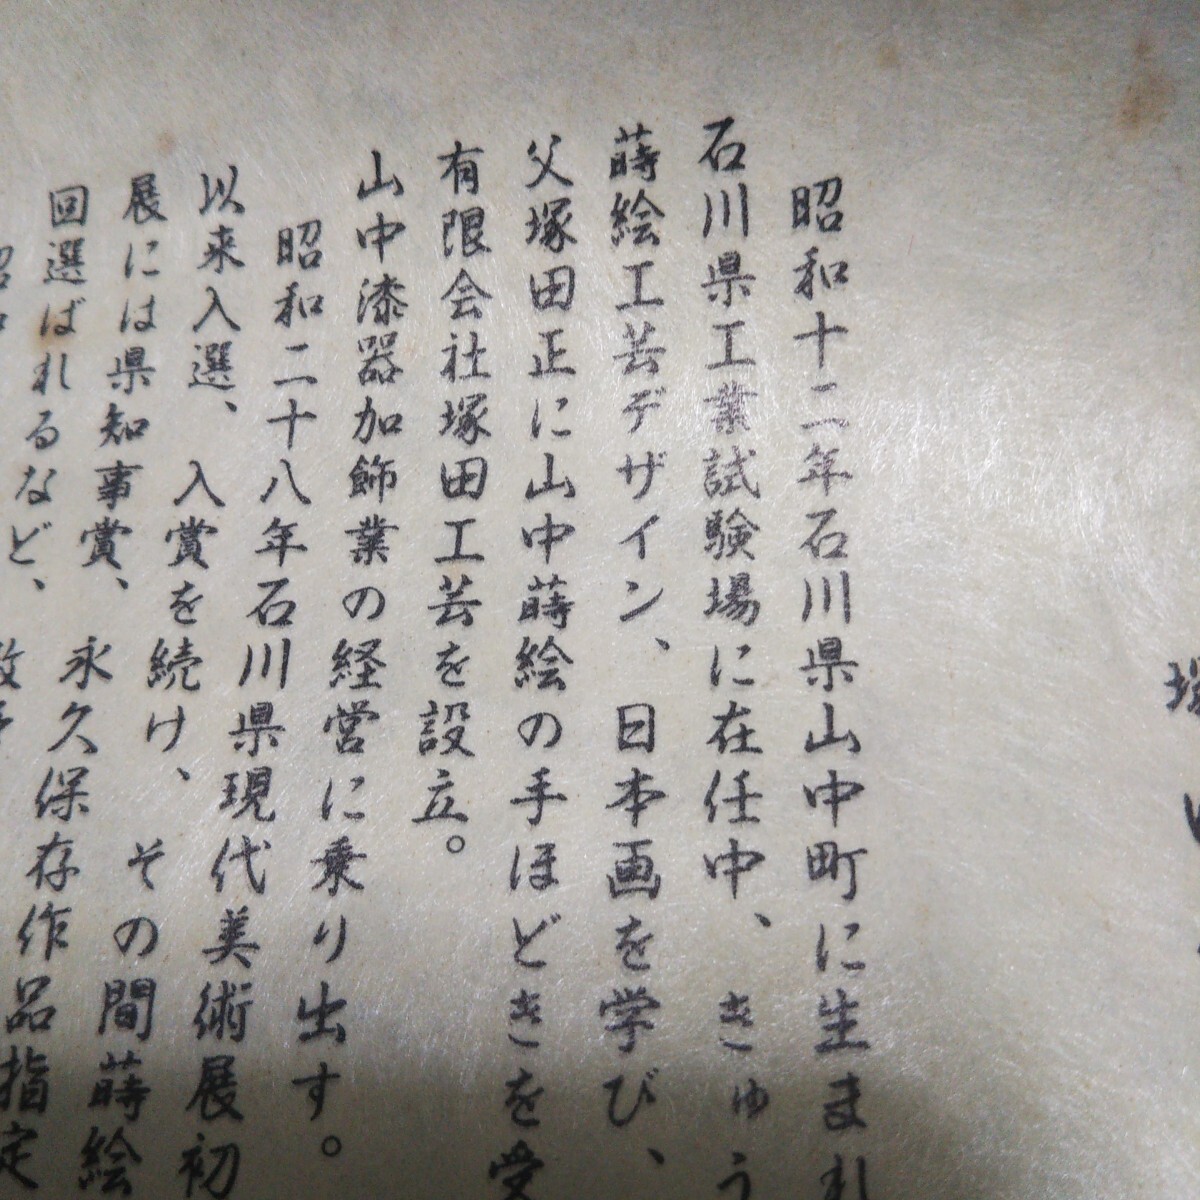 昭和十二年石川県山中町に生まれ
石川県工業試験場に在任中、きゅう
蒔絵工芸デザイン、日本画を学び、
父塚田正に山中蒔絵の手ほどきを受
有限会社塚田工芸を設立。
山中漆器加飾業の経営に乗り出す。
昭和二十八年石川県現代美術展初
以来入選、入賞を続け、その間蒔絵
展には県知事賞、永久保存作品指定
回選ばれるなど、